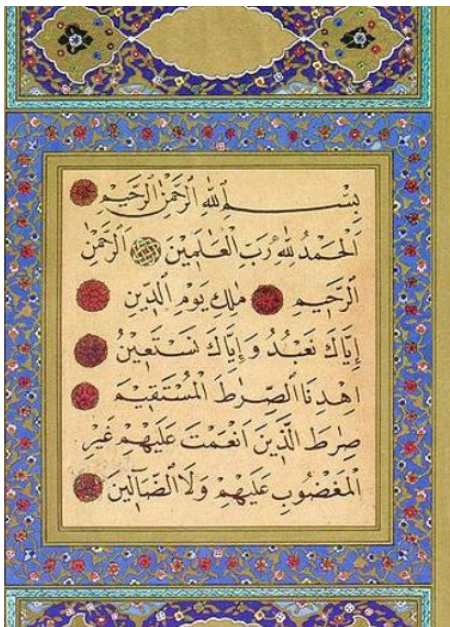 بِسْمِ اللهِ الرَّحْمٰنِ الرَّحِيمِ
اَلْحَمْدُ لِلهِ رَبِّ الْعَالَمِينَ الرَّحْمٰنِ
الرَّحِيمِ مٰلِكِ يَوْمِ الدِّينِ
اِيَّاكَ نَعْبُدُ وَاِيَّاكَ نَسْتَعِينُ
اِهْدِنَا الصِّرَاطَ الْمُسْتَقِيمَ
صِرَاطَ الَّذِينَ اَنْعَمْتَ عَلَيْهِمْ غَيْرِ
الْمَغْضُوبِ عَلَيْهِمْ وَلَا الضَّٓالِّينَ